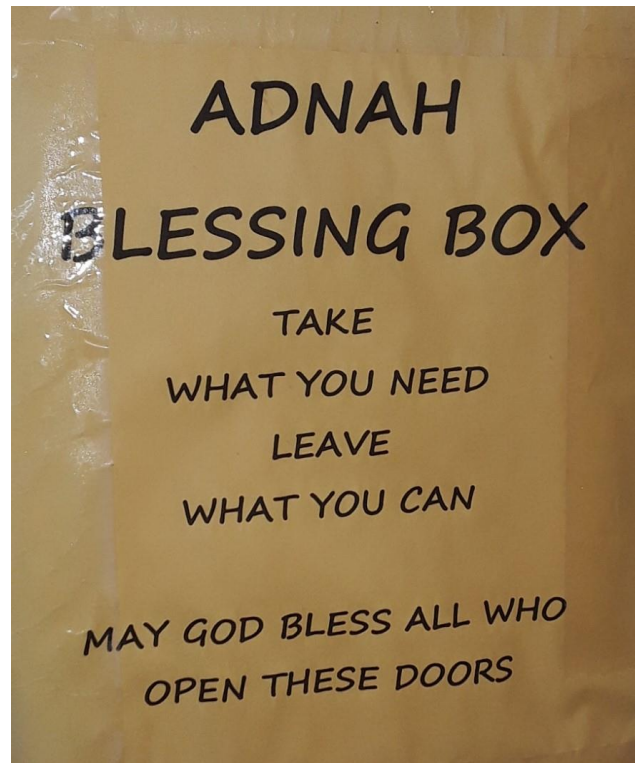 ADNAH
BLESSING BOX
TAKE
WHAT YOU NEED
LEAVE
WHAT YOU CAN
MAY GOD BLESS ALL WHO
OPEN THESE DOORS